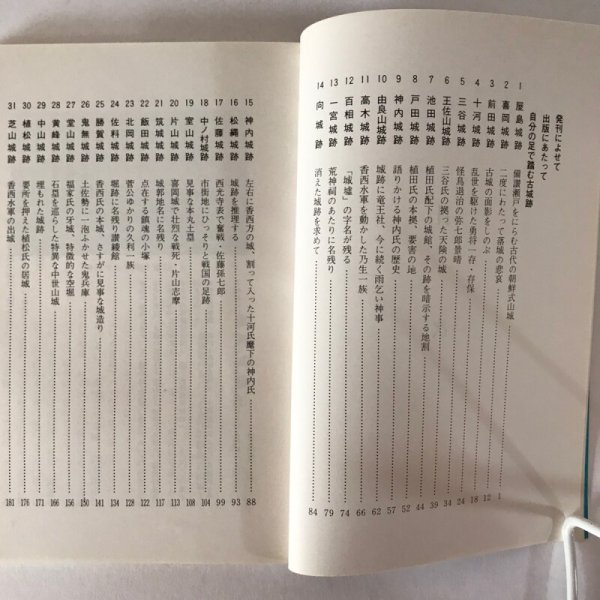 発刊によせて
出版にあたって
自分の足で踏む古城跡
1 屋島城跡 備讃瀬戸をにらむ古代の朝鮮式山城 1
2 喜岡城跡 二度にわたって落城の悲哀 12
3 前田城跡 古城の面影をしのぶ 18
4 十河城跡 乱世を駆けた勇将一存・存保 24
5 三谷城跡 怪鳥退治の弥七郎景晴 31
6 王佐山城跡 三谷氏の拠った天険の城 34
7 池田城跡 植田氏配下の城館、その跡を暗示する地割 39
8 戸田城跡 植田氏の本拠、要害の地 44
9 神内城跡 語りかける神内氏の歴史 52
10 由良山城跡 城跡に竜王社、今に続く雨乞い神事 57
11 高木城跡 香西水軍を動かした乃生一族 62
12 百相城跡 「城墟」の字名が残る 66
13 一宮城跡 荒神祠のあたりに名残り 74
14 向城跡 消えた城跡を求めて 79
84
15 神内城跡 左右に香西方の城、割って入った十河氏麾下の神内氏 88
16 松縄城跡 城跡を推理する 93
17 佐藤城跡 西光寺表で奮戦・佐藤孫七郎 99
18 中ノ村城跡 市街地にひっそりと戦国の足跡 104
19 室山城跡 見事な本丸土塁 108
20 片山城跡 喜岡城で壮烈な戦死・片山志摩 113
21 筑城城跡 城郭地名に名残り 117
22 飯田城跡 点在する鎮魂の小塚 122
23 北岡城跡 菅公ゆかりの久利一族 128
24 佐料城跡 堀跡に名残り讃綾館 134
25 勝賀城跡 香西氏の本城、さすがに見事な城造り 141
26 鬼無城跡 土佐勢に一泡ふかせた鬼兵庫 150
27 堂山城跡 福家氏の牙城、特徴的な空堀 156
28 黄峰城跡 石塁を巡らした特異な中世山城 166
29 中山城跡 埋もれた城跡 171
30 植松城跡 要所を押えた植松氏の居城 176
31 芝山城跡 香西水軍の出城 181